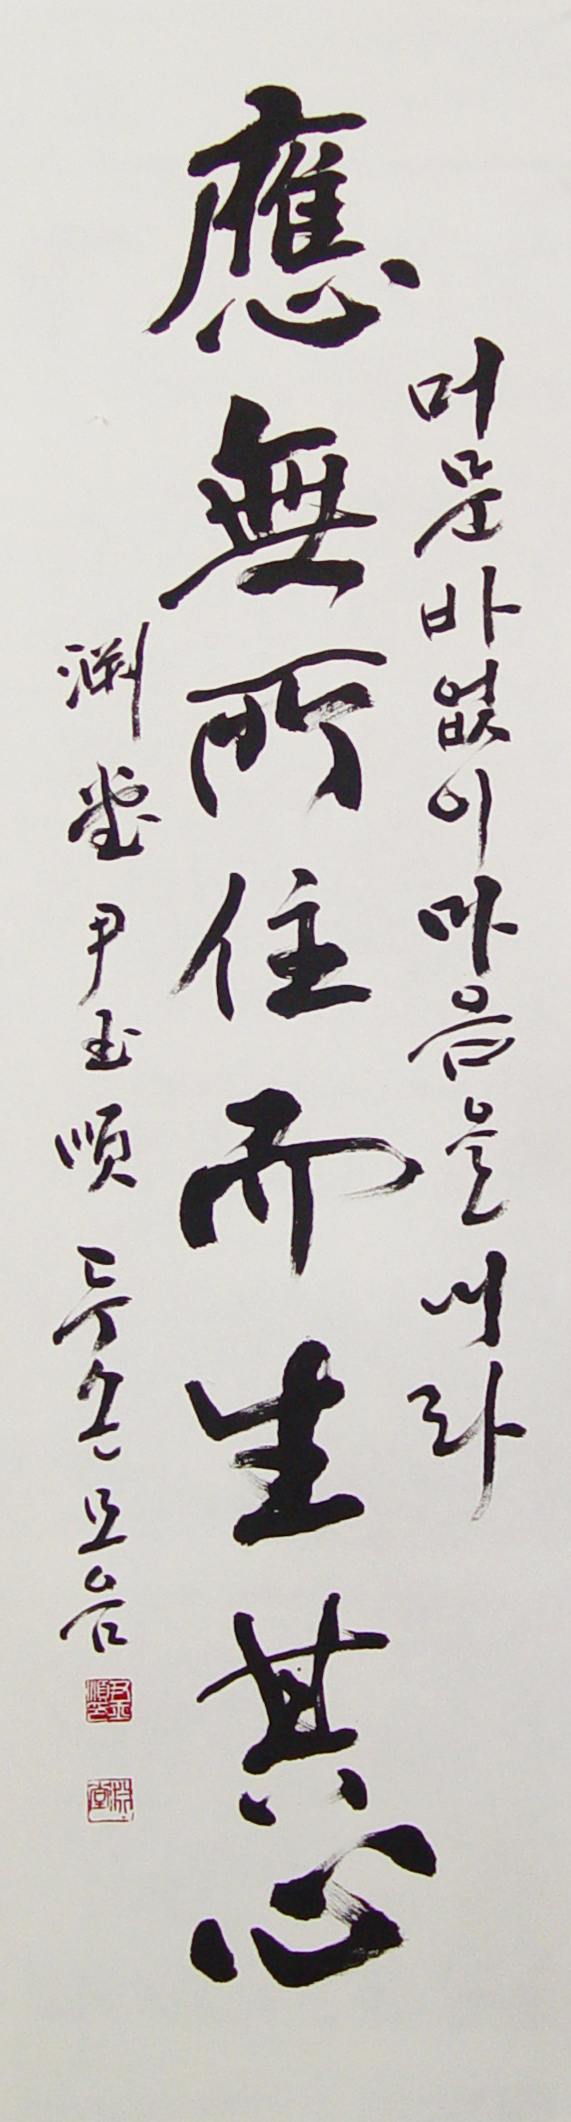 머문바없이마음을내라
應無所住而生其心
渊堂 尹玉順 두손모음
尹玉順印
淵堂